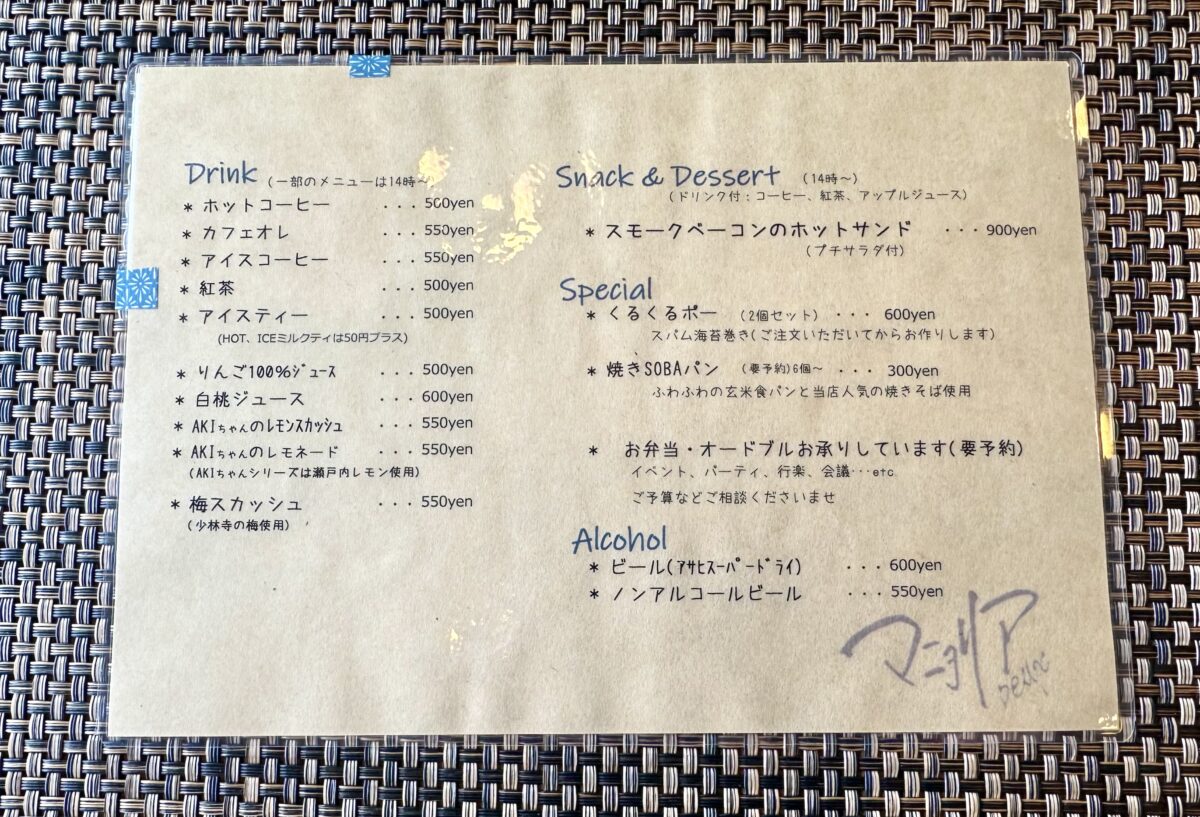 Drink (一部のメニューは14時～)
* ホットコーヒー ... 500yen
* カフェオレ ... 550yen
* アイスコーヒー ... 550yen
* 紅茶 ... 500yen
* アイスティー ... 500yen
(HOT、ICEミルクティは50円プラス)
* りんご100%ｼﾞｭｰｽ ... 500yen
* 白桃ジュース ... 600yen
* AKIちゃんのﾚﾓﾝスカッシュ ... 550yen
* AKIちゃんのレモネード ... 550yen
(AKIちゃんシリーズは瀬戸内レモン使用)
* 梅スカッシュ ... 550yen
(少林寺の梅使用)
Snack & Dessert (14時～)
(ドリンク付：コーヒー、紅茶、アップルジュース)
* スモークベーコンのホットサンド ... 900yen
(プチサラダ付)
Special
* くるくるポー (2個セット) ... 600yen
スパム海苔巻き(ご注文いただいてからお作りします)
* 焼きSOBAパン (要予約)6個～ ... 300yen
ふわふわの玄米食パンと当店人気の焼きそば使用
* お弁当・オードブルお承りしています(要予約)
イベント、パーティ、行楽、会議･･･etc
ご予算などご相談くださいませ
Alcohol
* ビール(ｱｻﾋｽｰﾊﾟｰﾄﾞﾗｲ) ... 600yen
* ノンアルコールビール ... 550yen
マニョリア